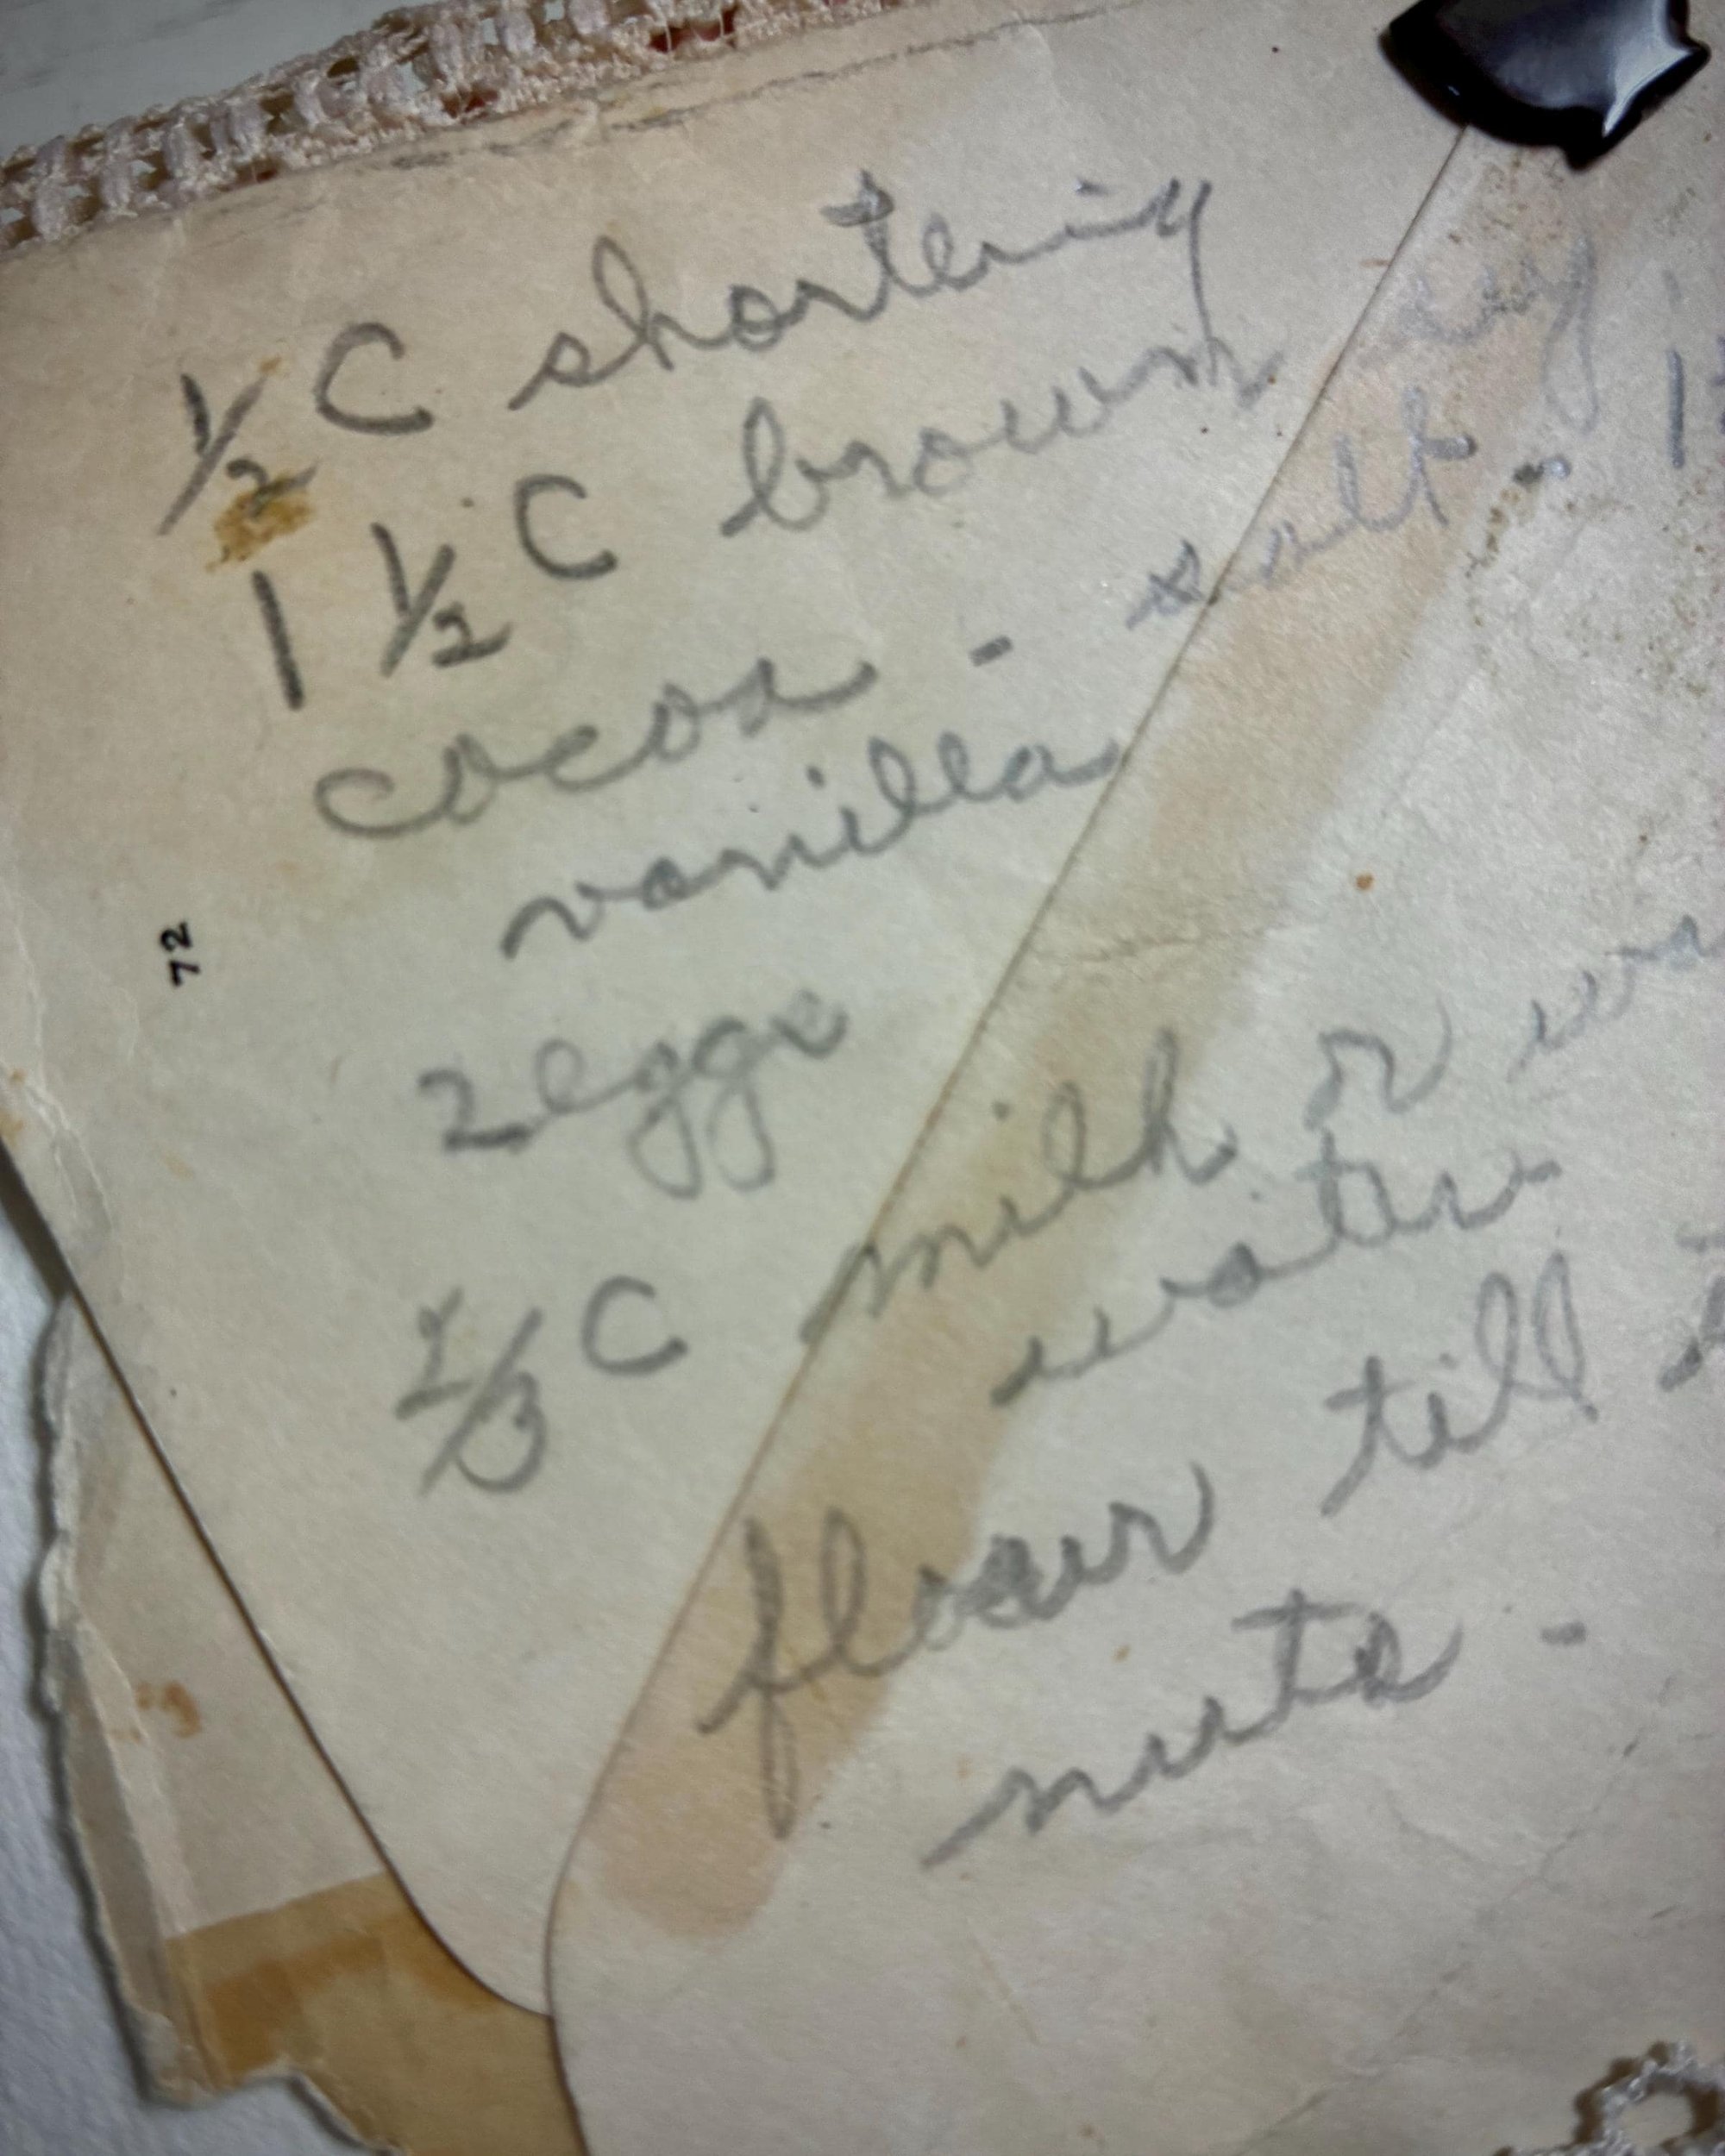 ½ C shortening
1 ½ C brown
cocoa - salt -
vanilla
2 eggs
⅔ C milk or
water
flour till
nuts -
72